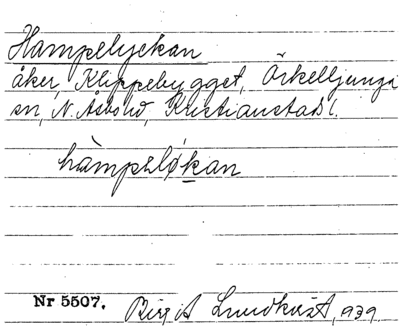 Hampelyckan
åker, Klippebygget, Örkelljunga
sn, N. Åsbo hd, Kristianstads l.
hàmpəløkan
Nr 5507. Birgit Lundkvist, 939